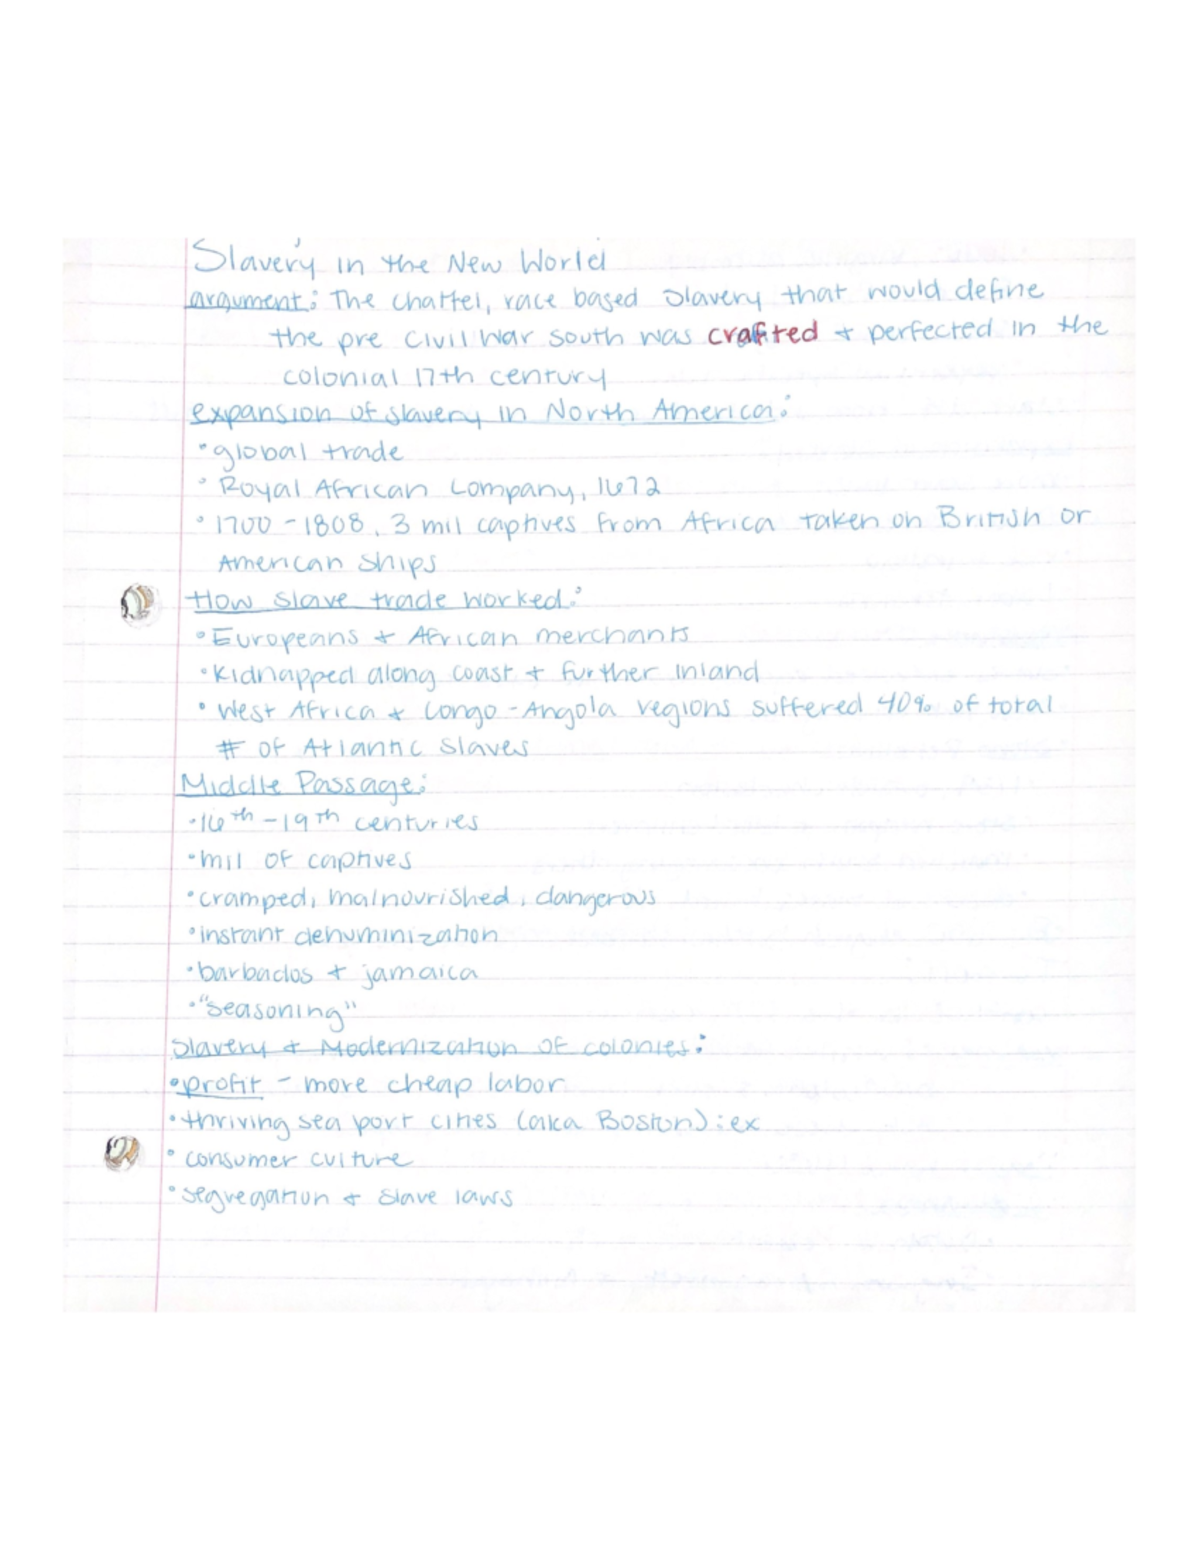 Slavery in the New World
argument: The chattel, race based slavery that would define
the pre civil war south was crafted + perfected in the
colonial 17th century
expansion of slavery in North America:
•global trade
•Royal African Company, 1672
•1700-1808, 3 mil captives from Africa taken on British or
American ships
How slave trade worked:
•Europeans + African merchants
•kidnapped along coast + further inland
•West Africa + Congo-Angola regions suffered 40% of total
# of Atlantic slaves
Middle Passage:
•16th-19th centuries
•mil of captives
•cramped, malnourished, dangerous
•instant dehuminization
•barbados + jamaica
•"seasoning"
Slavery + Modernization of colonies:
•profit - more cheap labor
•thriving sea port cities (aka Boston):ex
•consumer culture
•segregation + slave laws